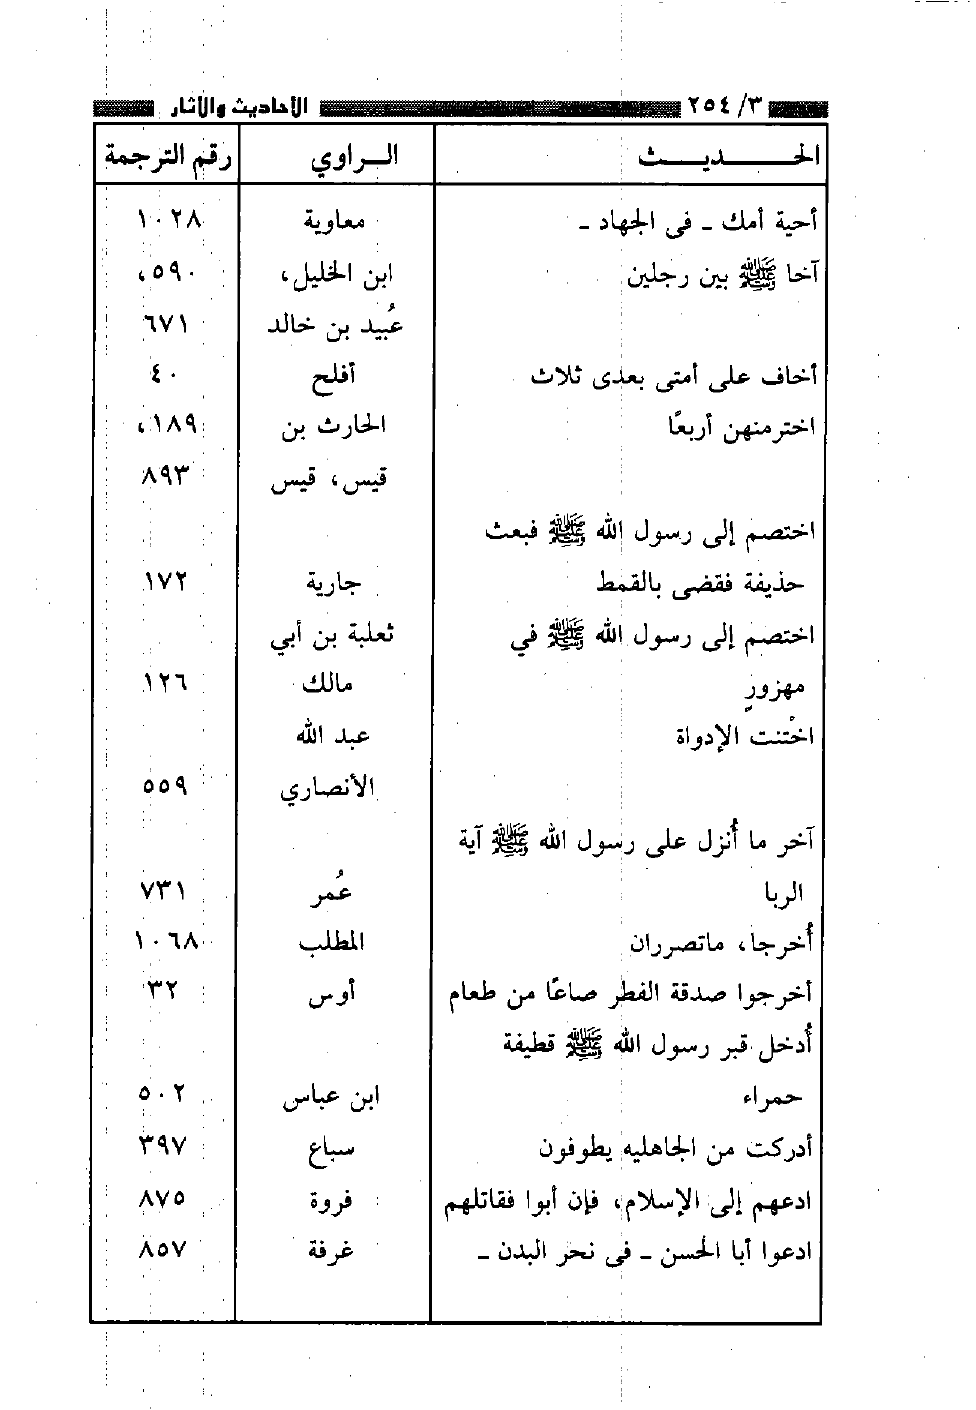 ٢٥٤/٣ الأحاديث والآثار
الحديث الراوي رقم الترجمة
أحية أمك - فى الجهاد - معاوية ١٠٢٨
آخا ﷺ بين رجلين ابن الخليل، ٥٩٠،
عُبيد بن خالد ٦٧١
أخاف على أمتى بعدى ثلاث أفلح ٤٠
اخترمنهن أربعًا الحارث بن ١٨٩،
قيس، قيس ٨٩٣
اختصم إلى رسول الله ﷺ فبعث
حذيفة فقضى بالقمط جارية ١٧٢
اختصم إلى رسول الله ﷺ في ثعلبة بن أبي
مهزورٍ مالك ١٢٦
اخْتنت الإدواة عبد الله
الأنصاري ٥٥٩
آخر ما أُنزل على رسول الله ﷺ آية
الربا عُمر ٧٣١
أُخرجا، ماتصرران المطلب ١٠٦٨
أخرجوا صدقة الفطر صاعًا من طعام أوس ٣٢
أُدخل قبر رسول الله ﷺ قطيفة
حمراء ابن عباس ٥٠٢
أدركت من الجاهليه يطوفون سباع ٣٩٧
ادعهم إلى الإسلام، فإن أبوا فقاتلهم فروة ٨٧٥
ادعوا أبا الحسن - فى نحر البدن - غرفة ٨٥٧